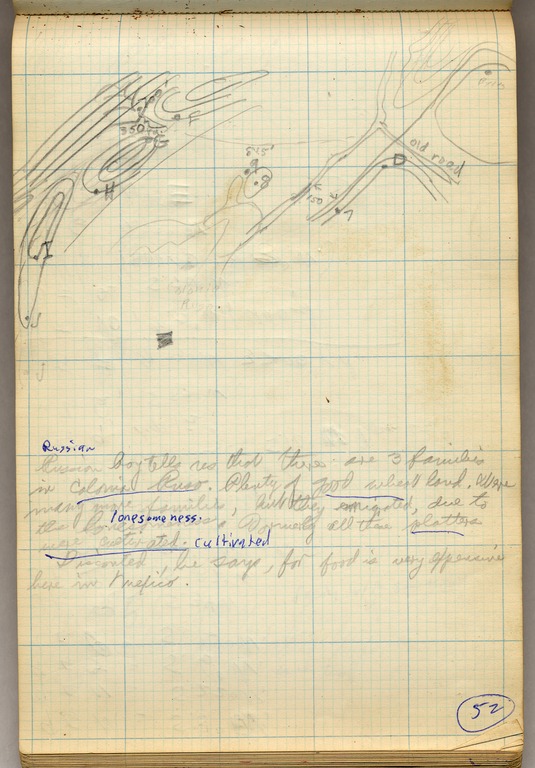 old road
D
A
B
F
350
G
H
I
J
545'
E
150
Russian
Russian boy tells us that there are 3 families
in Colonia Ruso. Plenty of good wheat land. Were
many more families, but they emigrated, due to
the lonesomeness. Formerly all these
lonesomeness.
were cultivated. cultivated
Discontented, he says, for food is very expensive
here in Mexico.
52